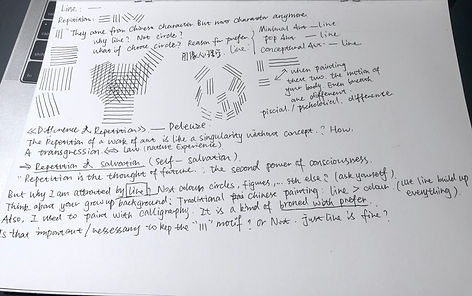 Line : —
Repetition :
||| They came from Chinese character But not character anymore.
Why line? Not circle?
What if choose circle? Reason for prefer line :
Minimal Art — line
Pop Art — line
Conceptual Art — line
when painting
these two. the motion of
your body. Even breath
are different.
difference
<<Difference & Repetition>> — Deleuze
The Repetition of a work of art is like a singularity without concept. ? How.
A transgression ⟷ Law (nature Experience)
→ Repetition & salvation (self-salvation).
"Repetition is the thought of future. : the second power of consciousness.
But why I am attracted by line? Not colour, circles, figures, ... sth else? (ask yourself).
Think about your grow up background: Traditional Chinese painting: line > colour (use line build up everything).
Also, I used to paint with calligraphy. It is a kind of borned with prefer.
Is that important / necessary to kep the "|||" motif? Or Not. just like is fine?